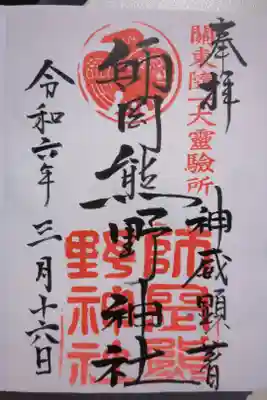 奉拝
關東隨一大靈驗所
神威顯著
師岡熊野神社
師岡熊
野神社
令和六年 三月十六日